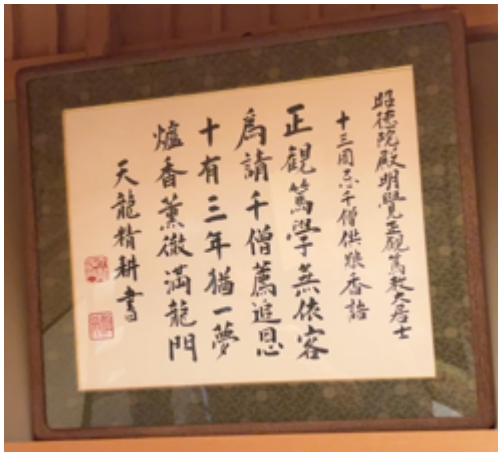 昭徳院殿明覺正観篤敎大居士
十三周忌千僧供養香語
正觀篤學無依客
爲請千僧薦追恩
十有三年猶一夢
爐香薰徹滿龍門
天龍精耕書